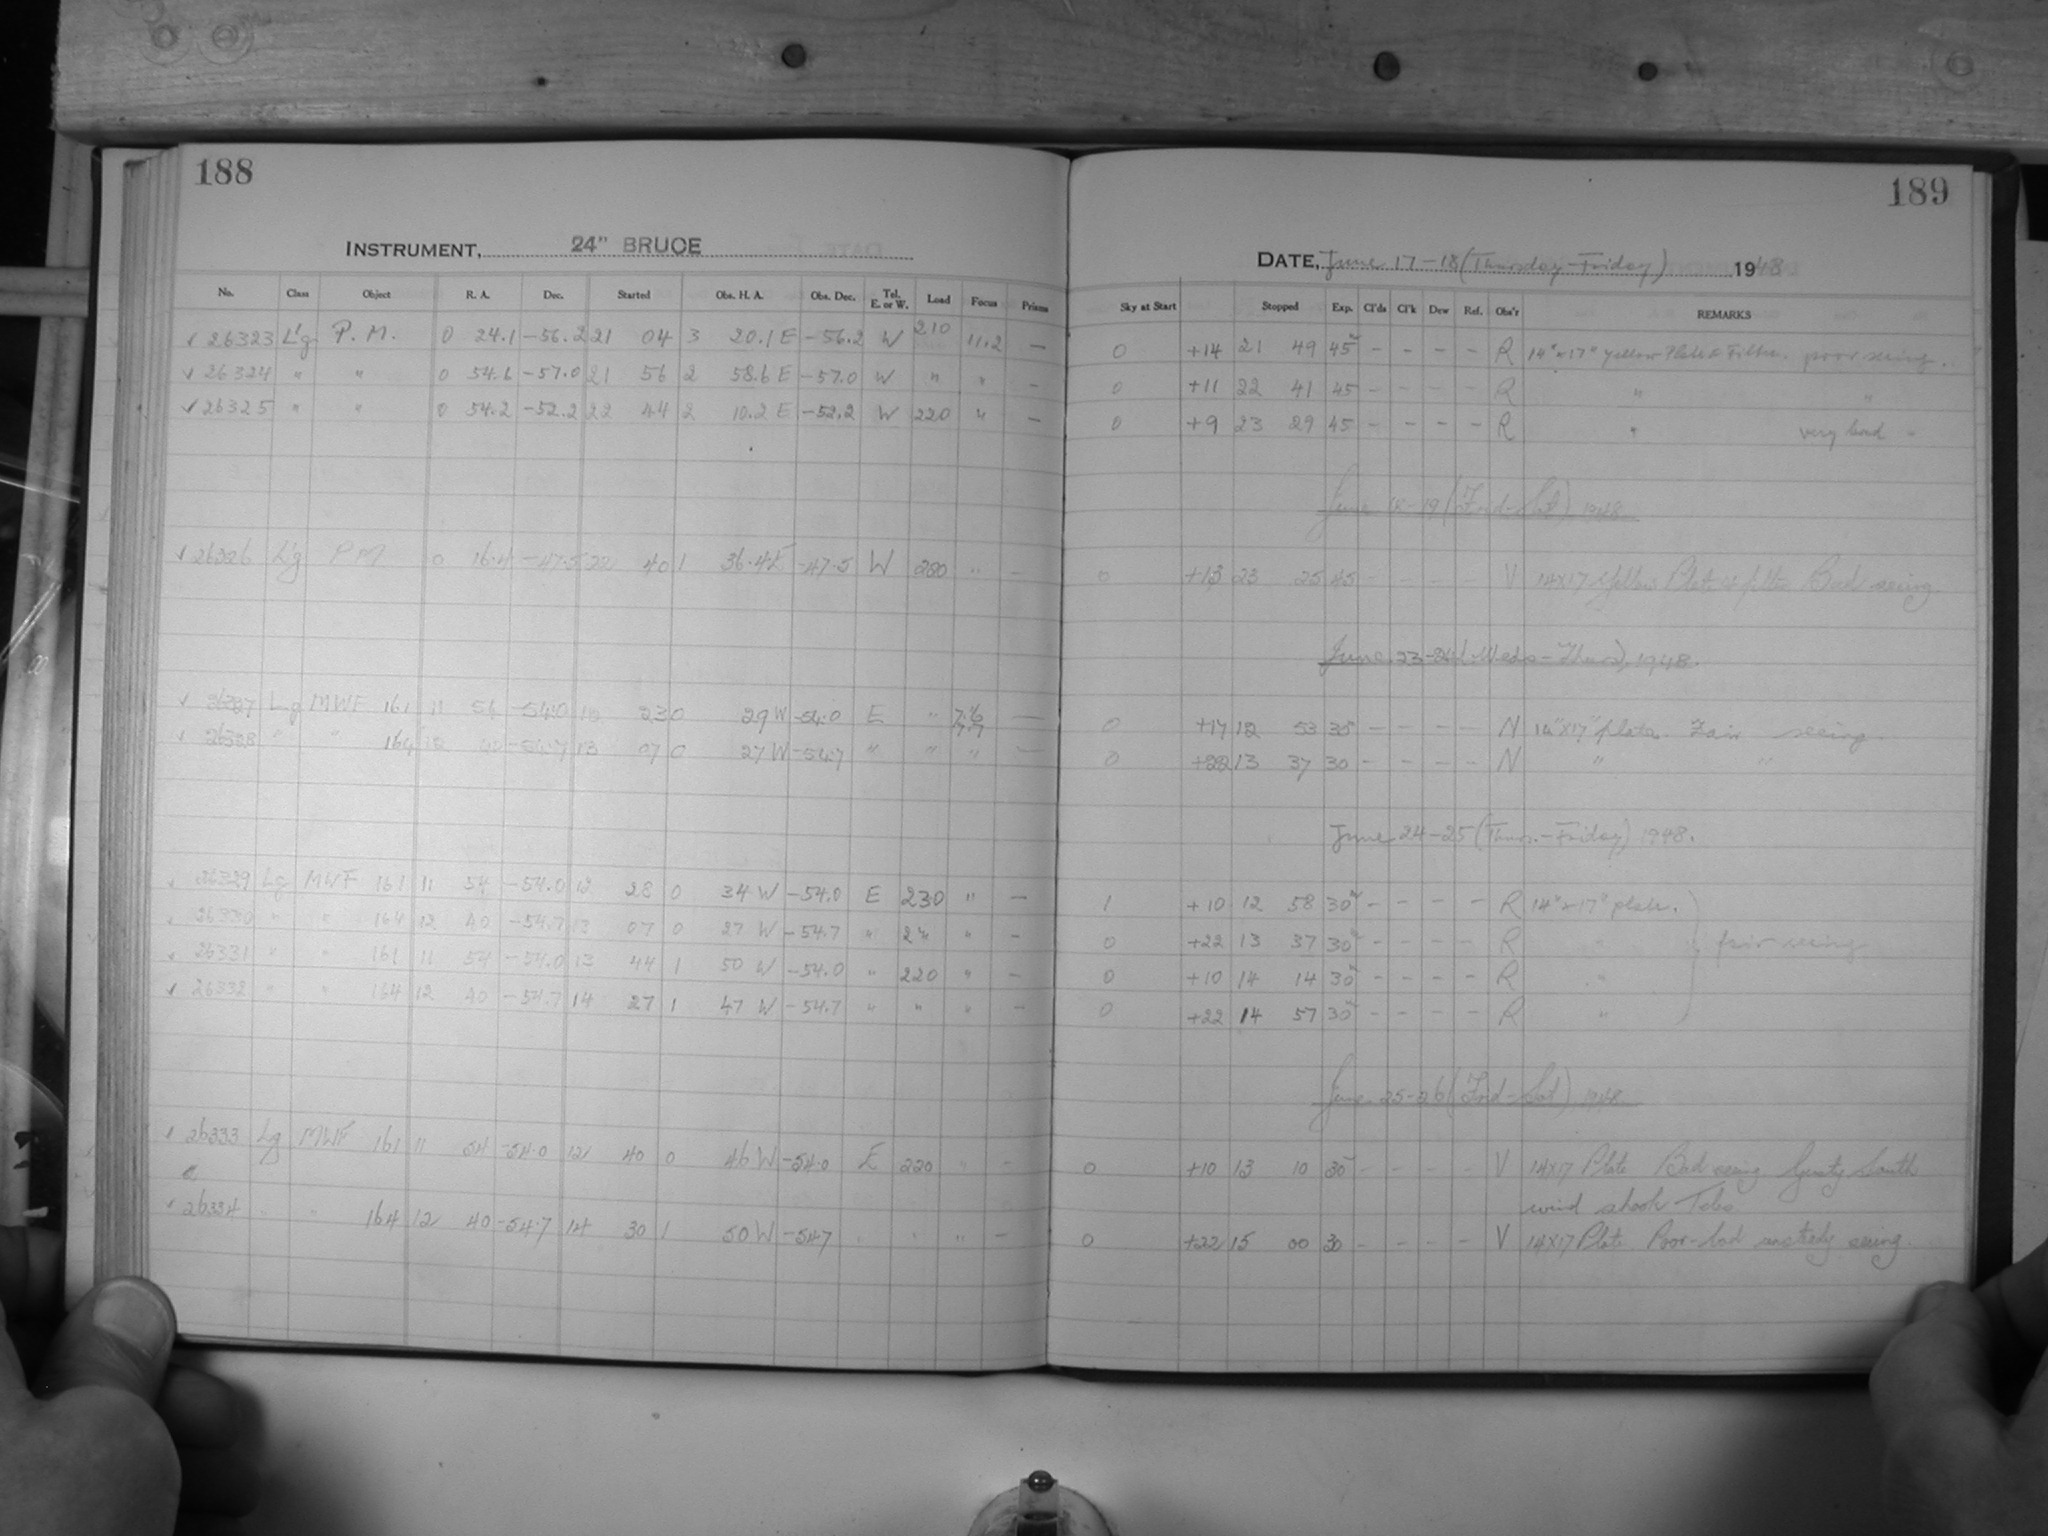 188
INSTRUMENT, 24" BRUCE
No. Class Object R. A. Dec. Started Obs. H. A. Obs. Dec. Tel. E. or W. Load Focus Prisms
✓ 26323 L'g P. M. 0 24.1 -56.2 21 04 3 20.1 E -56.2 W 210 11.2 —
✓ 26324 " " 0 54.6 -57.0 21 56 2 58.6 E -57.0 W " " —
✓ 26325 " " 0 54.2 -52.2 22 44 2 10.2 E -52.2 W 220 " —
✓ 26326 L'g P M 0 16.4 -47.5 22 40 1 36.4 E -47.5 W 280 " —
✓ 26327 Lg MWF 161 11 54 -54.0 12 23 0 29 W -54.0 E " —
✓ 26328 " " 164 12 40 -54.7 13 07 0 27 W -54.7 " " " —
✓ 26329 Lg MWF 161 11 54 -54.0 12 28 0 34 W -54.0 E 230 " —
✓ 26330 " " 164 12 40 -54.7 13 07 0 27 W -54.7 " " —
✓ 26331 " " 161 11 54 -54.0 13 44 1 50 W -54.0 " 220 " —
✓ 26332 " " 164 12 40 -54.7 14 27 1 47 W -54.7 " " " —
✓ 26333 Lg MWF 161 11 54 -54.0 12 40 0 46 W -54.0 E 220 " —
a
✓ 26334 " " 164 12 40 -54.7 14 30 1 50 W -54.7 " " " —
189
DATE, June 17-18 (Thursday-Friday) 1948
Sky at Start Stopped Exp. Cl'ds Cl'k Dew Ref. Obs'r REMARKS
0 +14 21 49 45 - - - - R 14" x 17" yellow Plate & Filter. poor seeing.
0 +11 22 41 45 - - - - R " "
0 +9 23 29 45 - - - - R " very bad "
June 18-19 (Frid-Sat) 1948
0 +13 23 25 45 - - - - V 14X17 Yellow Plate & filter Bad seeing.
June 23-24 (Weds-Thurs), 1948.
0 +17 12 53 35 - - - - N 14"X17" plate. Fair seeing.
0 +22 13 37 30 - - - - N " "
June 24-25 (Thurs.-Friday) 1948.
1 +10 12 58 30 - - - - R 14"x17" plate.
0 +22 13 37 30 - - - - R " fair seeing
0 +10 14 14 30 - - - - R "
0 +22 14 57 30 - - - - R "
June 25-26 (Frid-Sat) 1948
0 +10 13 10 30 - - - - V 14X17 Plate Bad seeing Gusty South
wind shook Teles
0 +22 15 00 30 - - - - V 14X17 Plate Poor-bad unsteady seeing.